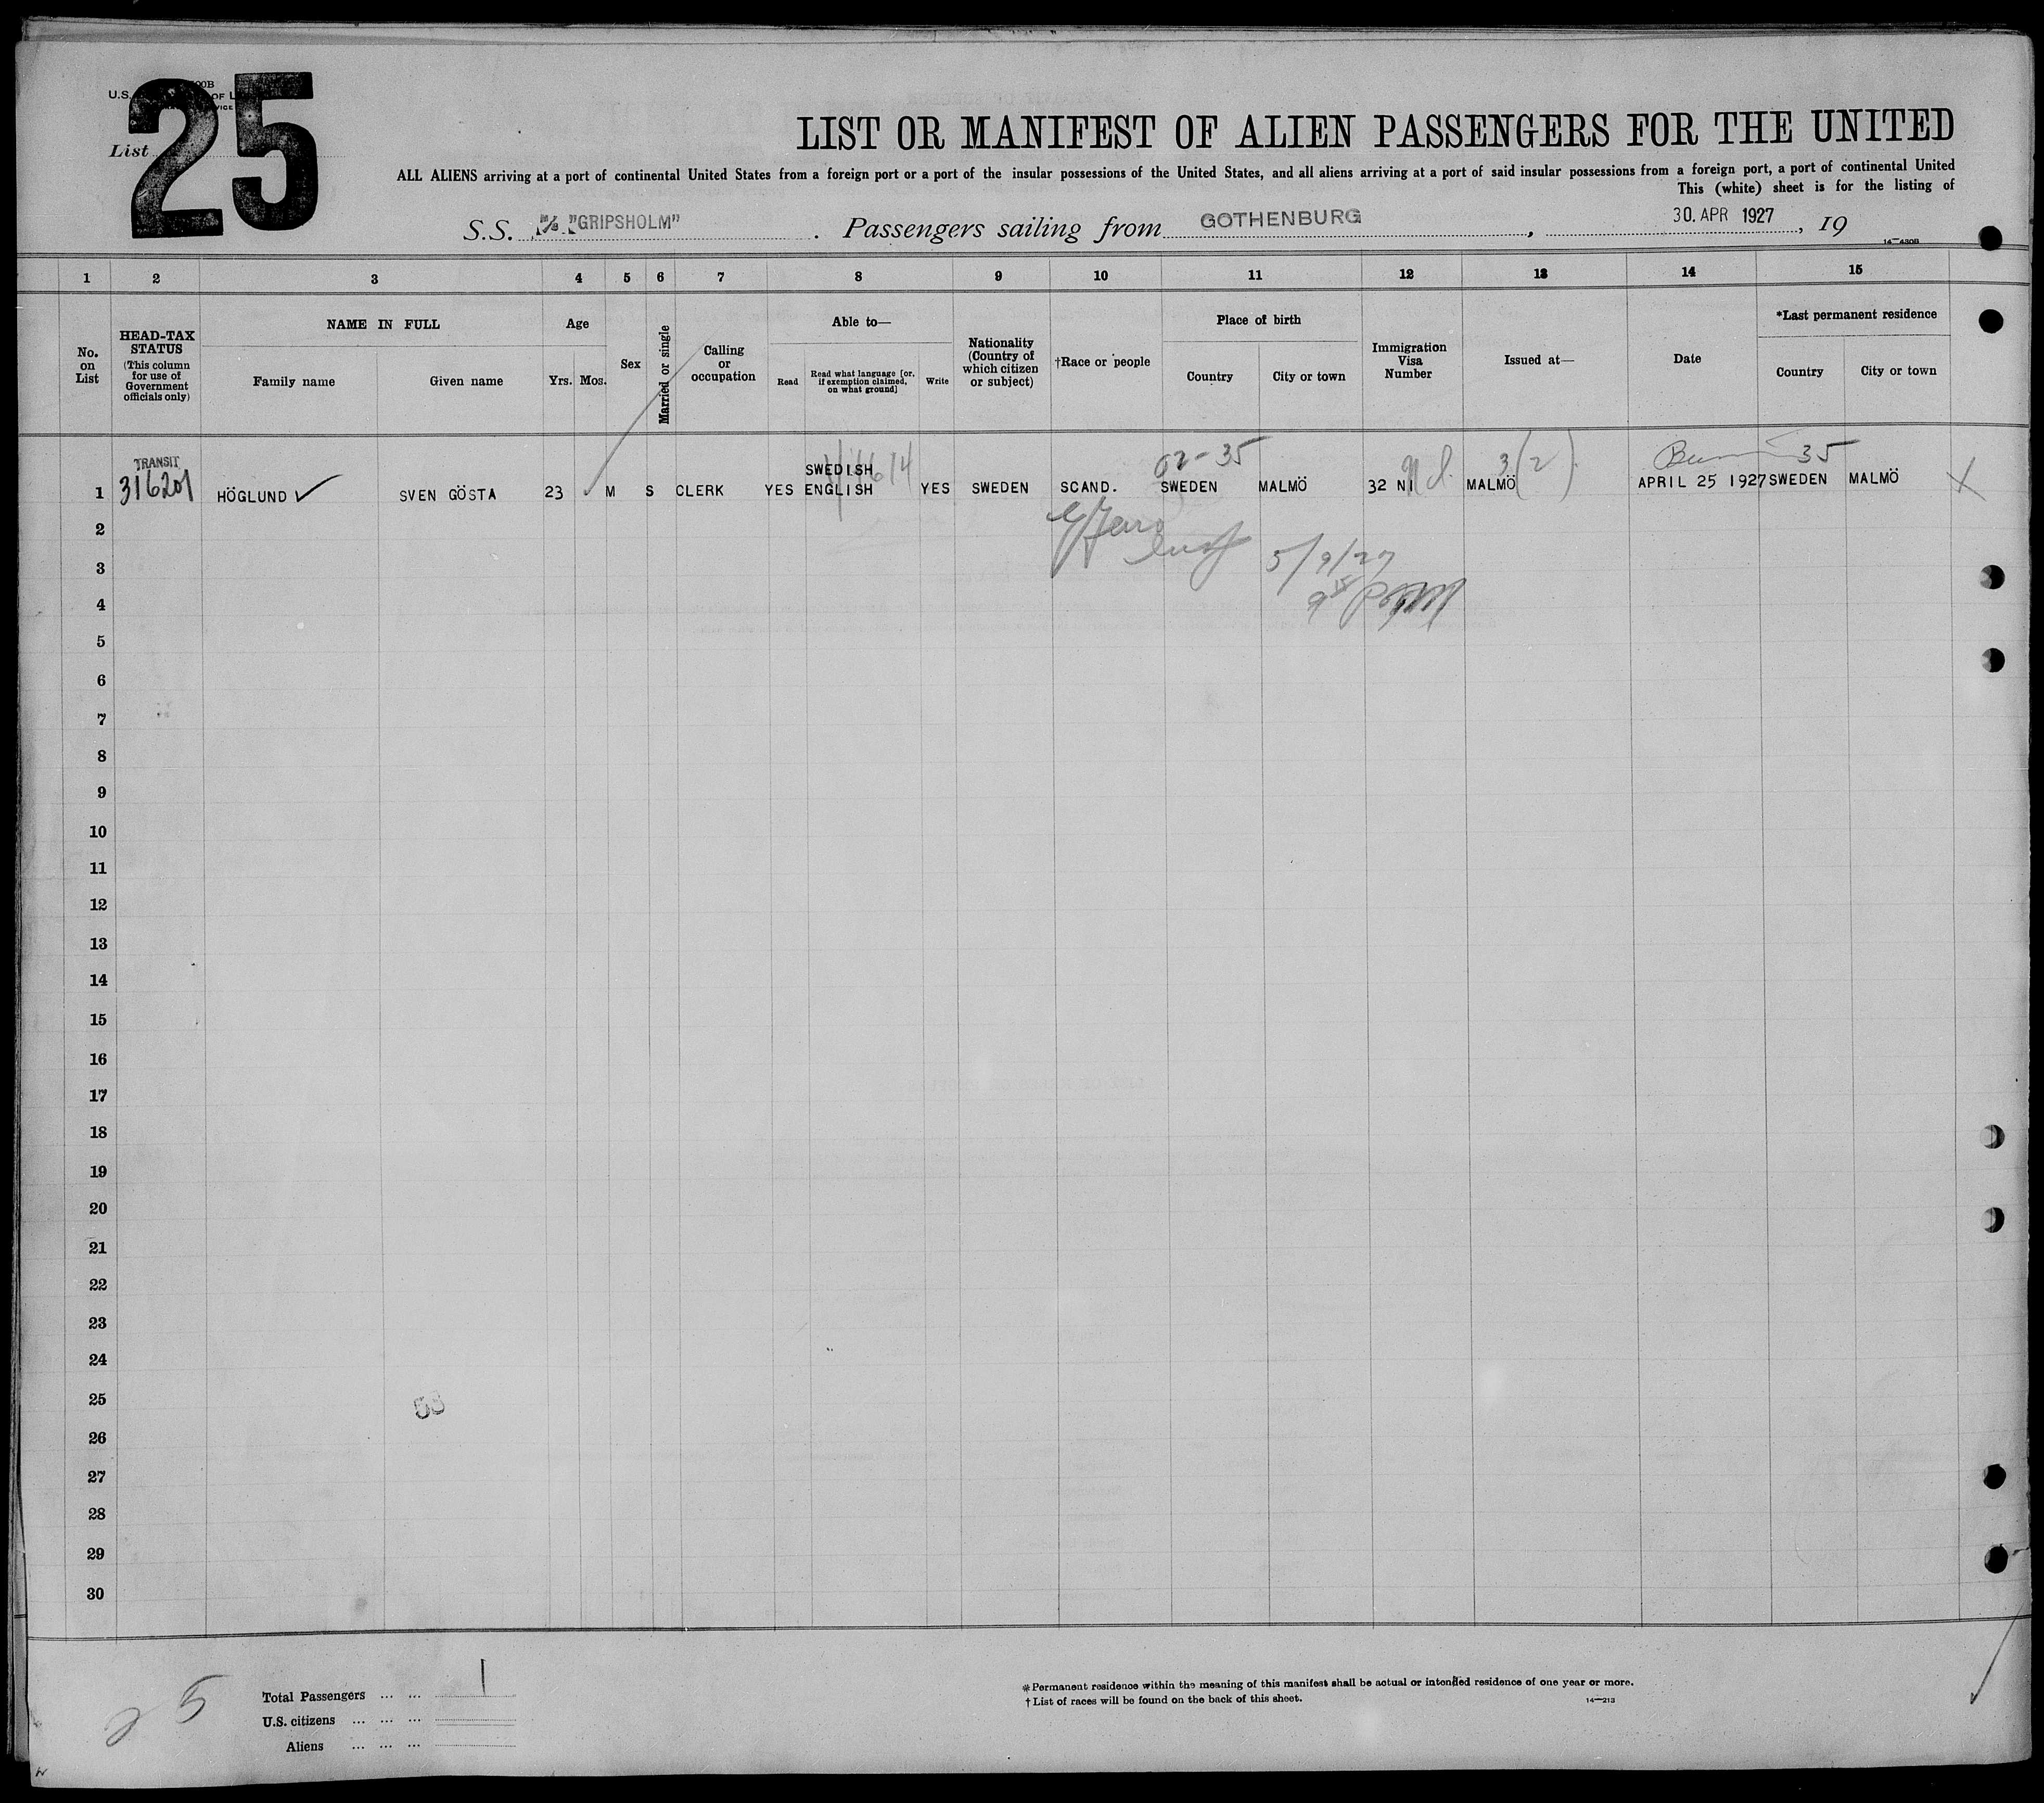 25
List
LIST OR MANIFEST OF ALIEN PASSENGERS FOR THE UNITED
ALL ALIENS arriving at a port of continental United States from a foreign port or a port of the insular possessions of the United States, and all aliens arriving at a port of said insular possessions from a foreign port, a port of continental United
This (white) sheet is for the listing of
S.S. M/S "GRIPSHOLM". Passengers sailing from GOTHENBURG, 30. APR 1927, 19
14—430B
1 2 3 4 5 6 7 8 9 10 11 12 13 14 15
No. on List
HEAD-TAX STATUS (This column for use of Government officials only)
NAME IN FULL
Family name
Given name
Age
Yrs. Mos.
Sex
Married or single
Calling or occupation
Able to—
Read
Read what language [or, if exemption claimed, on what ground]
Write
Nationality (Country of which citizen or subject)
†Race or people
Place of birth
Country
City or town
Immigration Visa Number
Issued at—
Date
*Last permanent residence
Country
City or town
TRANSIT
02-35
35
SWEDISH
1 316201 HÖGLUND ✓ SVEN GÖSTA 23 M S CLERK YES ENGLISH YES SWEDEN SCAND. SWEDEN MALMÖ 32 NI MALMÖ 3(2) APRIL 25 1927 SWEDEN MALMÖ X
2
3 5/9/27
4
5
6
7
8
9
10
11
12
13
14
15
16
17
18
19
20
21
22
23
24
25
26
27
28
29
30
25
Total Passengers ... ... 1
U.S. citizens ... ... ...
Aliens ... ... ...
* Permanent residence within the meaning of this manifest shall be actual or intended residence of one year or more.
† List of races will be found on the back of this sheet.
14—213